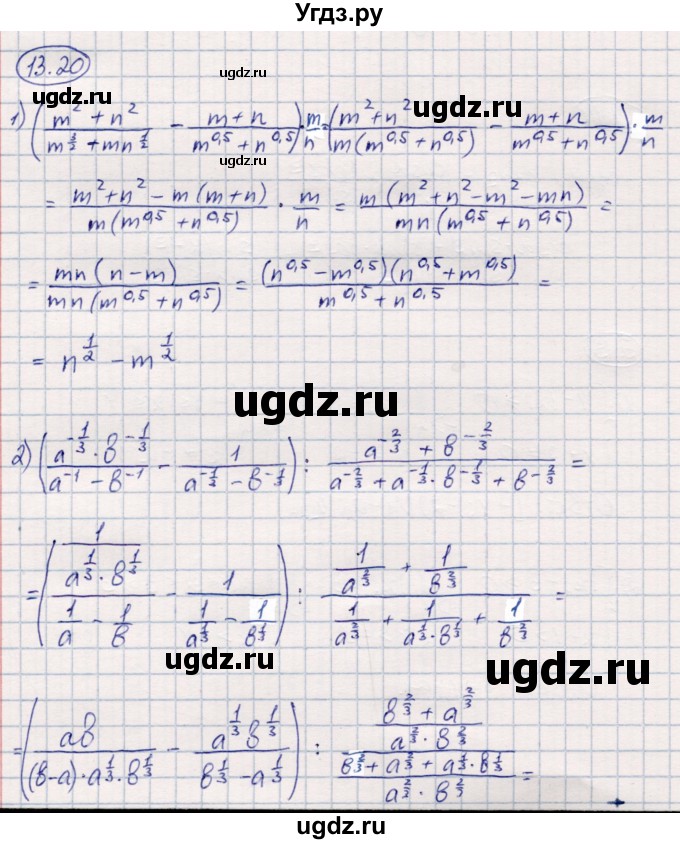 Угдз.ру
13.20
ugdz.ru
ugdz.ru
ugdz.ru
1) ((m² + n²)/(m^(3/2) + mn^(1/2)) − (m + n)/(m^0,5 + n^0,5)) · m/n = ((m² + n²)/(m(m^0,5 + n^0,5)) − (m + n)/(m^0,5 + n^0,5)) · m/n
ugdz.ru
= (m² + n² − m(m + n))/(m(m^0,5 + n^0,5)) · m/n = (m(m² + n² − m² − mn))/(mn(m^0,5 + n^0,5)) =
= (mn(n − m))/(mn(m^0,5 + n^0,5)) = ((n^0,5 − m^0,5)(n^0,5 + m^0,5))/(m^0,5 + n^0,5) =
= n^(1/2) − m^(1/2)
ugdz.ru
ugdz.ru
2) ((a^(−1/3) · b^(−1/3))/(a^(−1) − b^(−1)) − 1/(a^(−1/3) − b^(−1/3))) : (a^(−2/3) + b^(−2/3))/(a^(−2/3) + a^(−1/3) · b^(−1/3) + b^(−2/3)) =
ugdz.ru
= ((1/(a^(1/3) · b^(1/3)))/(1/a − 1/b) − 1/(1/a^(1/3) − 1/b^(1/3))) : (1/a^(2/3) + 1/b^(2/3))/(1/a^(2/3) + 1/(a^(1/3) · b^(1/3)) + 1/b^(2/3)) =
ugdz.ru
ugdz.ru
= (ab/((b − a) · a^(1/3) · b^(1/3)) − (a^(1/3) b^(1/3))/(b^(1/3) − a^(1/3))) : ((b^(2/3) + a^(2/3))/(a^(2/3) · b^(2/3)))/((b^(2/3) + a^(2/3) + a^(1/3) · b^(1/3))/(a^(2/3) · b^(2/3))) =
ugdz.ru